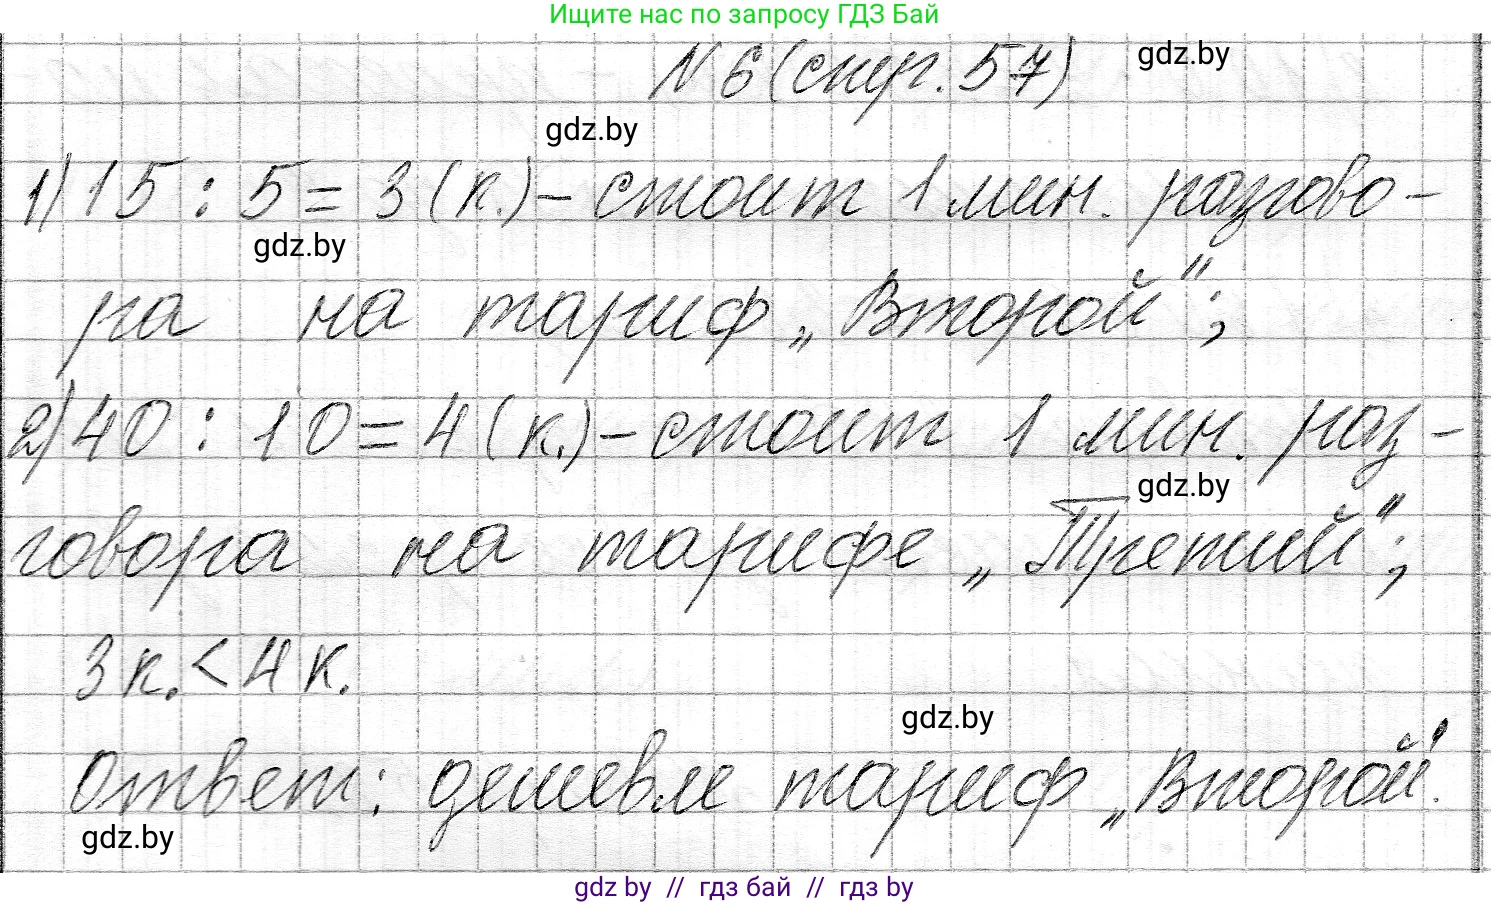 Ищите нас по запросу ГДЗ Бай
N 6 (стр. 57)
gdz.by
gdz.by
1) 15 : 5 = 3 (к.) – стоит 1 мин. разгово-
gdz.by
ра на тариф „Второй";
2) 40 : 10 = 4 (к.) – стоит 1 мин. раз-
gdz.by
говора на тарифе „Третий";
3 к. < 4 к.
gdz.by
Ответ: дешевле тариф „Второй".
gdz.by
gdz by // гдз бай // гдз by